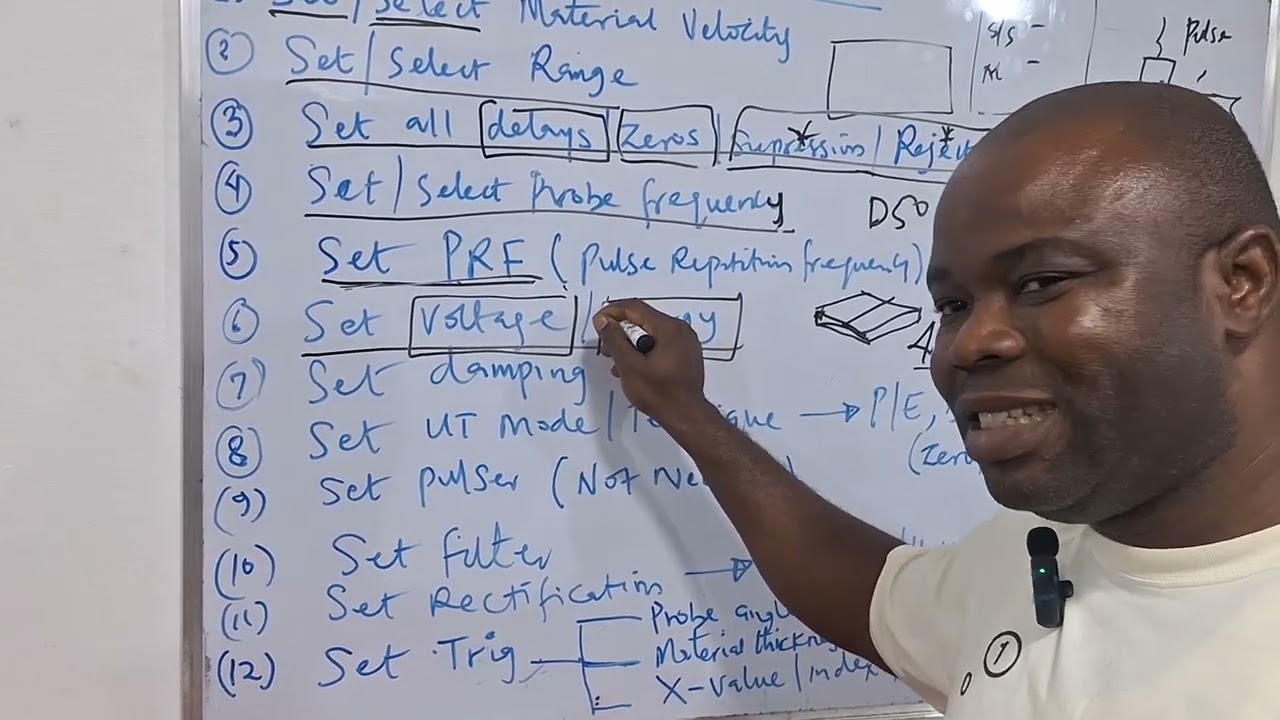 Set/Select Material Velocity
② Set/Select Range
③ Set all delays / Zeros / Supression / Reject
④ Set/Select Probe frequency
⑤ Set PRF (Pulse Repitition frequency)
⑥ Set Voltage /
(7) Set damping
⑧ Set UT Mode/
(9) Set pulser (Not
(10) Set filter
(11) Set Rectification →
(12) Set Trig
Probe angle
Material thickness
X-value / index
S/S -
M -
Pulse
DSO
A
→ P/E,